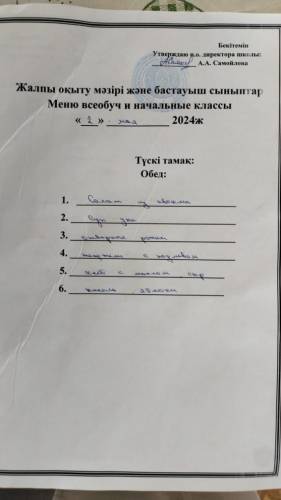 Бекітемін
Утверждаю и.о. директора школы:
А.А. Самойлова
Жалпы оқыту мәзірі және бастауыш сыныптар
Меню всеобуч и начальные классы
« 2 » мая 2024ж
Түскі тамақ:
Обед:
1. Салат из
2. Суп
3.
4. с
5. хлеб с маслом сыр
6. яблоки